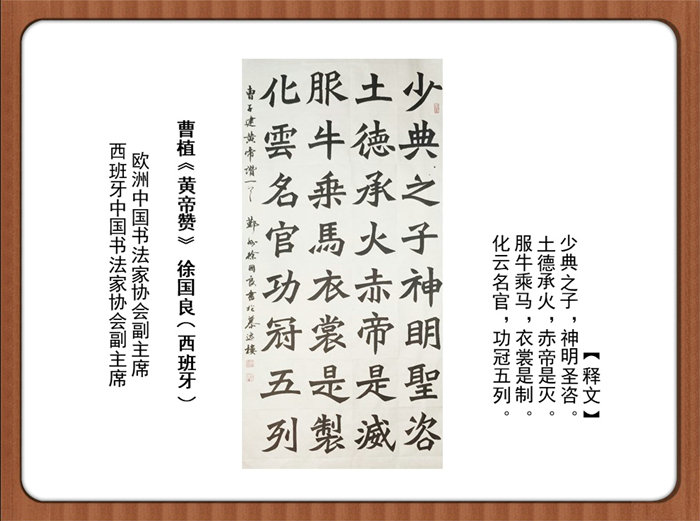 【释文】
少典之子，神明圣咨。
土德承火，赤帝是灭。
服牛乘马，衣裳是制。
化云名官，功冠五列。
少典之子神明聖咨
土德承火赤帝是滅
服牛乘馬衣裳是製
化雲名官功冠五列
曹子建黄帝讚一首 鄞州徐國良書於慕远樓
曹植《黄帝赞》 徐国良（西班牙）
欧洲中国书法家协会副主席
西班牙中国书法家协会副主席